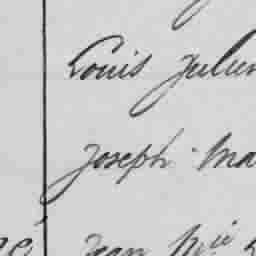 Louis Julien
Joseph Ma
Jean Mie